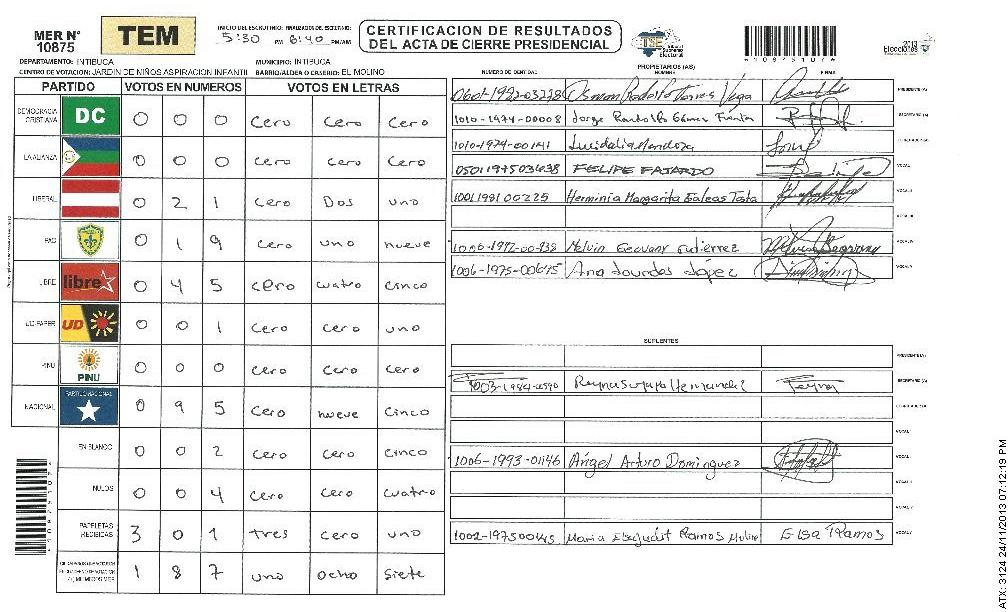 MER N° 10875
TEM
INICIO DEL ESCRUTINIO: 5:30 PM
FINALIZACION DEL ESCRUTINIO: 8:40 PM/AM
CERTIFICACION DE RESULTADOS
DEL ACTA DE CIERRE PRESIDENCIAL
TSE Tribunal Supremo Electoral
2013 Elecciones
DEPARTAMENTO: INTIBUCA
MUNICIPIO: INTIBUCA
CENTRO DE VOTACION: JARDIN DE NIÑOS ASPIRACION INFANTIL
BARRIO/ALDEA O CASERIO: EL MOLINO
PARTIDO VOTOS EN NUMEROS VOTOS EN LETRAS
DEMOCRACIA CRISTIANA DC 0 0 0 Cero Cero Cero
LA ALIANZA 0 0 0 cero cero cero
LIBERAL 0 2 1 cero Dos uno
PAC 0 1 9 cero uno nueve
LIBRE libre 0 4 5 cero cuatro cinco
UD-FAPER UD 0 0 1 cero cero uno
PINU PINU 0 0 0 Cero Cero Cero
NACIONAL PARTIDO NACIONAL 0 9 5 Cero nueve Cinco
EN BLANCO 0 0 2 Cero Cero Cinco
NULOS 0 0 4 Cero Cero cuatro
PAPELETAS RECIBIDAS 3 0 1 tres cero uno
1 8 7 uno ocho siete
PROPIETARIOS (AS)
NUMERO DE IDENTIDAD NOMBRE FIRMA
0601-1992-03228 Osman Rodolfo Torres Vega PRESIDENTE(A)
1010-1974-00008 Jorge SECRETARIO (A)
1010-1979-00141 Lucidalia Mendoza
0501197503638 FELIPE FAJARDO VOCAL I
1001198100225 Herminia Margarita VOCAL II
VOCAL III
Melvin Geovany Gutierrez VOCAL IV
1006-1975-00645 Ana Lourdes López VOCAL V
SUPLENTES
PRESIDENTE(A)
1003-1984-0590 Hernandez Reyna SECRETARIO (A)
VOCAL I
1006-1993-01146 Angel Arturo Dominguez VOCAL II
VOCAL III
VOCAL IV
1002-197500145 Maria Ramos Elsa Ramos VOCAL V
ATX: 3124 24/11/2013 07:12:19 PM